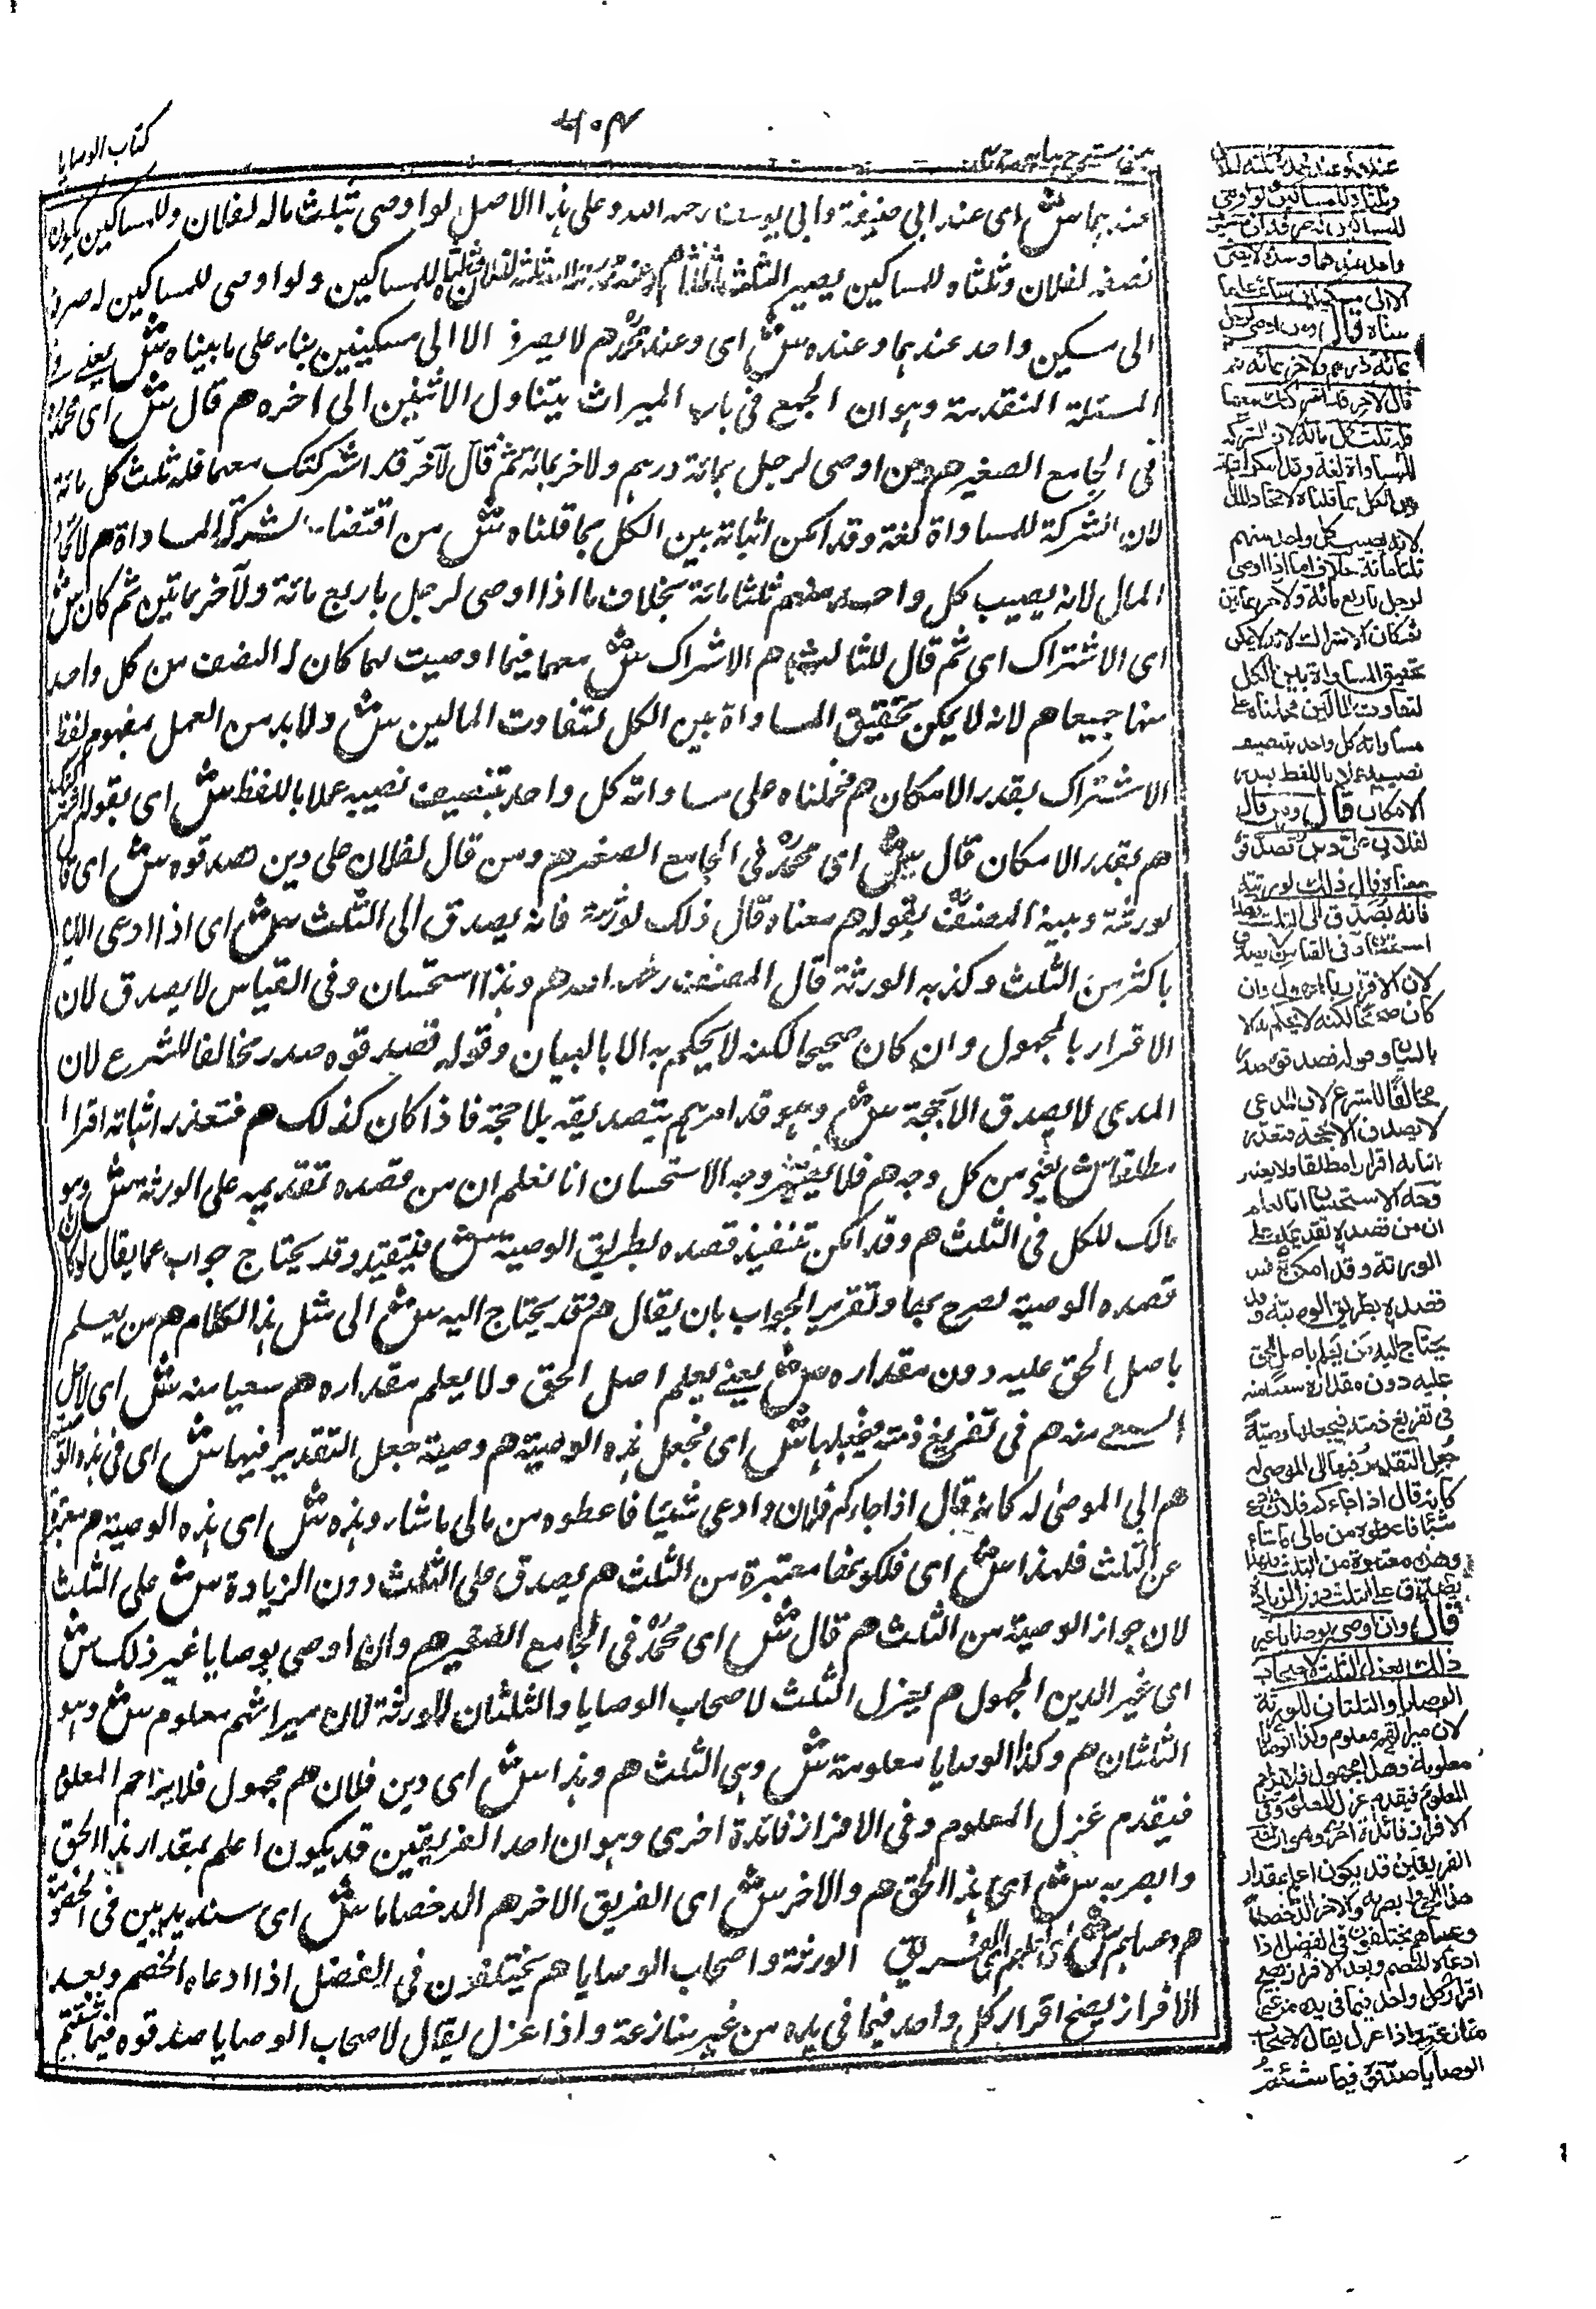 كتاب الوصايا
عندهما ش اى عند ابى حنيفة وابى يوسف رحمه الله وعلى هذا الاصل لو اوصى بثلث ماله لفلان وللمساكين
نصفه لفلان وثلثاه للمساكين يصير الثلث للمساكين ولو اوصى للمساكين له صرفه
الى مسكين واحد عندهما وعنده ش اى وعند محمد هم لا يصرف الا الى مسكينين بناء على ما بيناه ش يعنى فى
المسئلة المتقدمة وهو ان الجمع فى باب الميراث يتناول الاثنين الى اخره هم قال ش اى محمد
فى الجامع الصغير هم ومن اوصى لرجل بمائة درهم ولاخر بمائة ثم قال لآخر قد اشركتك معهما فله ثلث كل مائة
لان الشركة للمساواة لغة وقد امكن اثباته بين الكل بما قلناه ش من اقتضاء الشركة المساواة هم لاتحاد
المال لانه يصيب كل واحد منهم ثلثا مائة بخلاف ما اذا اوصى لرجل باربع مائة ولآخر بمائتين ثم كان ش
اى الاشتراك اى ثم قال للثالث هم الاشراك ش معهما فيما اوصيت لهما كان له النصف من كل واحد
منهما جميعا هم لانه لا يمكن تحقيق المساواة بين الكل لتفاوت المالين ش ولا بد من العمل بمفهوم لفظ
الاشتراك بقدر الامكان هم فحملناه على مساواته كل واحد بتنصيف نصيبه عملا باللفظ ش اى بقوله اشركتك
هم بقدر الامكان قال ش اى محمد فى الجامع الصغير هم ومن قال لفلان على دين فصدقوه ش اى قال
لورثته وبينه المصنف بقوله هم معناه قال ذلك لورثته فانه يصدق الى الثلث ش اى اذا ادعى الدين
باكثر من الثلث وكذبه الورثة قال المصنف رحمه الله هم وهذا استحسان وفى القياس لا يصدق لان
الاقرار بالمجهول وان كان صحيحا لكنه لا يحكم به الا بالبيان وقوله فصدقوه صدر مخالفا للشرع لان
المدعى لا يصدق الا بحجة ش وهو قد امرهم بتصديقه بلا حجة فاذا كان كذلك هم فتعذر اثباته اقرارا
مطلقا ش يعنى من كل وجه هم فلا يعتبر وجه الاستحسان انا نعلم ان من قصده تقديمه على الورثة ش وهو
مالك للكل فى الثلث هم وقد امكن تنفيذ قصده بطريق الوصية ش فيتقيد وقد يحتاج جواب عما يقال لو كان
قصده الوصية لصرح بها وتقرير الجواب بان يقال هم قد يحتاج اليه ش الى مثل هذا الكلام هم من يعلم
باصل الحق عليه دون مقداره ش يعنى يعلم اصل الحق ولا يعلم مقداره هم سعيا منه ش اى لاجل
السعى منه هم فى تفريغ ذمته فيجعلها ش اى فيجعل هذه الوصية هم وصية جعل التقدير فيها ش اى فى هذه الوصية
هم الى الموصى له كانه قال اذا جاءكم فلان وادعى شيئا فاعطوه من مالى ما شاء وهذه ش اى هذه الوصية هم معتبرة
من الثلث فلهذا ش اى فلكونها معتبرة من الثلث هم يصدق على الثلث دون الزيادة ش على الثلث
لان جواز الوصية من الثلث هم قال ش اى محمد فى الجامع الصغير هم وان اوصى بوصايا غير ذلك ش
اى غير الدين المجهول هم يعزل الثلث لاصحاب الوصايا والثلثان للورثة لان ميراثهم معلوم ش وهو
الثلثان هم وكذا الوصايا معلومة ش وهى الثلث هم وهذا ش اى دين فلان هم مجهول فلا يزاحم المعلوم
فيقدم عزل المعلوم وفى الافراز فائدة اخرى وهو ان احد الفريقين قد يكون اعلم بمقدار هذا الحق
وابصر به ش اى هذا الحق هم والاخر ش اى الفريق الاخر هم الد خصاما ش اى شديدين فى الخصومة
هم وعساهم ش الفريقين الورثة واصحاب الوصايا هم يختلفون فى الفضل اذا ادعاه الخصم وبعد
الافراز يصح اقرار كل واحد فيما فى يده من غير منازعة واذا عزل يقال لاصحاب الوصايا صدقوه فيما شئتم
وثلثاه للمساكين ولو اوصى
واحد عندهما وعنده لا يصرف
الا الى مسكينين بناء على ما
بيناه قال ومن اوصى لرجل
بمائة درهم ولاخر بمائة ثم
قال لاخر قد اشركتك معهما
فله ثلث كل مائة لان الشركة
للمساواة لغة وقد امكن اثباته
بين الكل بما قلناه لاتحاد المال
لانه يصيب كل واحد منهم
ثلثا مائة بخلاف ما اذا اوصى
لرجل باربع مائة ولاخر بمائتين
ثم كان الاشراك لانه لا يمكن
تحقيق المساواة بين الكل
لتفاوت المالين فحملناه على
مساواته كل واحد بتنصيف
نصيبه عملا باللفظ بقدر
الامكان قال ومن قال
لفلان على دين فصدقوه
معناه قال ذلك لورثته
فانه يصدق الى الثلث وهذا
استحسان وفى القياس لا يصدق
لان الاقرار بالمجهول وان
كان صحيحا لكنه لا يحكم به الا
بالبيان وقوله فصدقوه صدر
مخالفا للشرع لان المدعى
لا يصدق الا بحجة فتعذر
اثباته اقرارا مطلقا فلا يعتبر
وجه الاستحسان انا نعلم
ان من قصده تقديمه على
الورثة وقد امكن تنفيذ
قصده بطريق الوصية وقد
يحتاج اليه من يعلم باصل الحق
عليه دون مقداره سعيا منه
فى تفريغ ذمته فيجعلها وصية
جعل التقدير فيها الى الموصى له
كانه قال اذا جاءكم فلان وادعى
شيئا فاعطوه من مالى ما شاء
وهذه معتبرة من الثلث فلهذا
يصدق على الثلث دون الزيادة
قال وان اوصى بوصايا غير
ذلك يعزل الثلث لاصحاب
الوصايا والثلثان للورثة
لان ميراثهم معلوم وكذا الوصايا
معلومة وهذا مجهول فلا يزاحم
المعلوم فيقدم عزل المعلوم وفى
الافراز فائدة اخرى وهو ان احد
الفريقين قد يكون اعلم بمقدار
هذا الحق وابصر به والاخر الد خصاما
وعساهم يختلفون فى الفضل اذا
ادعاه الخصم وبعد الافراز يصح
اقرار كل واحد فيما فى يده من غير
منازعة واذا عزل يقال لاصحاب
الوصايا صدقوه فيما شئتم